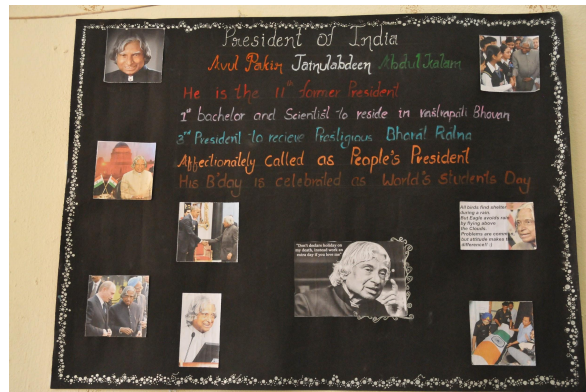 President of India
Avul Pakir Jainulabdeen Abdul Kalam
He is the 11th former President
1st bachelor and Scientist to reside in rashtrapati Bhavan
3rd President to recieve Prestigious Bharat Ratna
Affectionately called as People's President
His B'day is celebrated as World's Students Day
All birds find shelter
during a rain.
But Eagle avoids rain
by flying above
the Clouds.
Problems are common,
but attitude makes the
difference!!
"Don't declare holiday on
my death, instead work an
extra day if you love me"